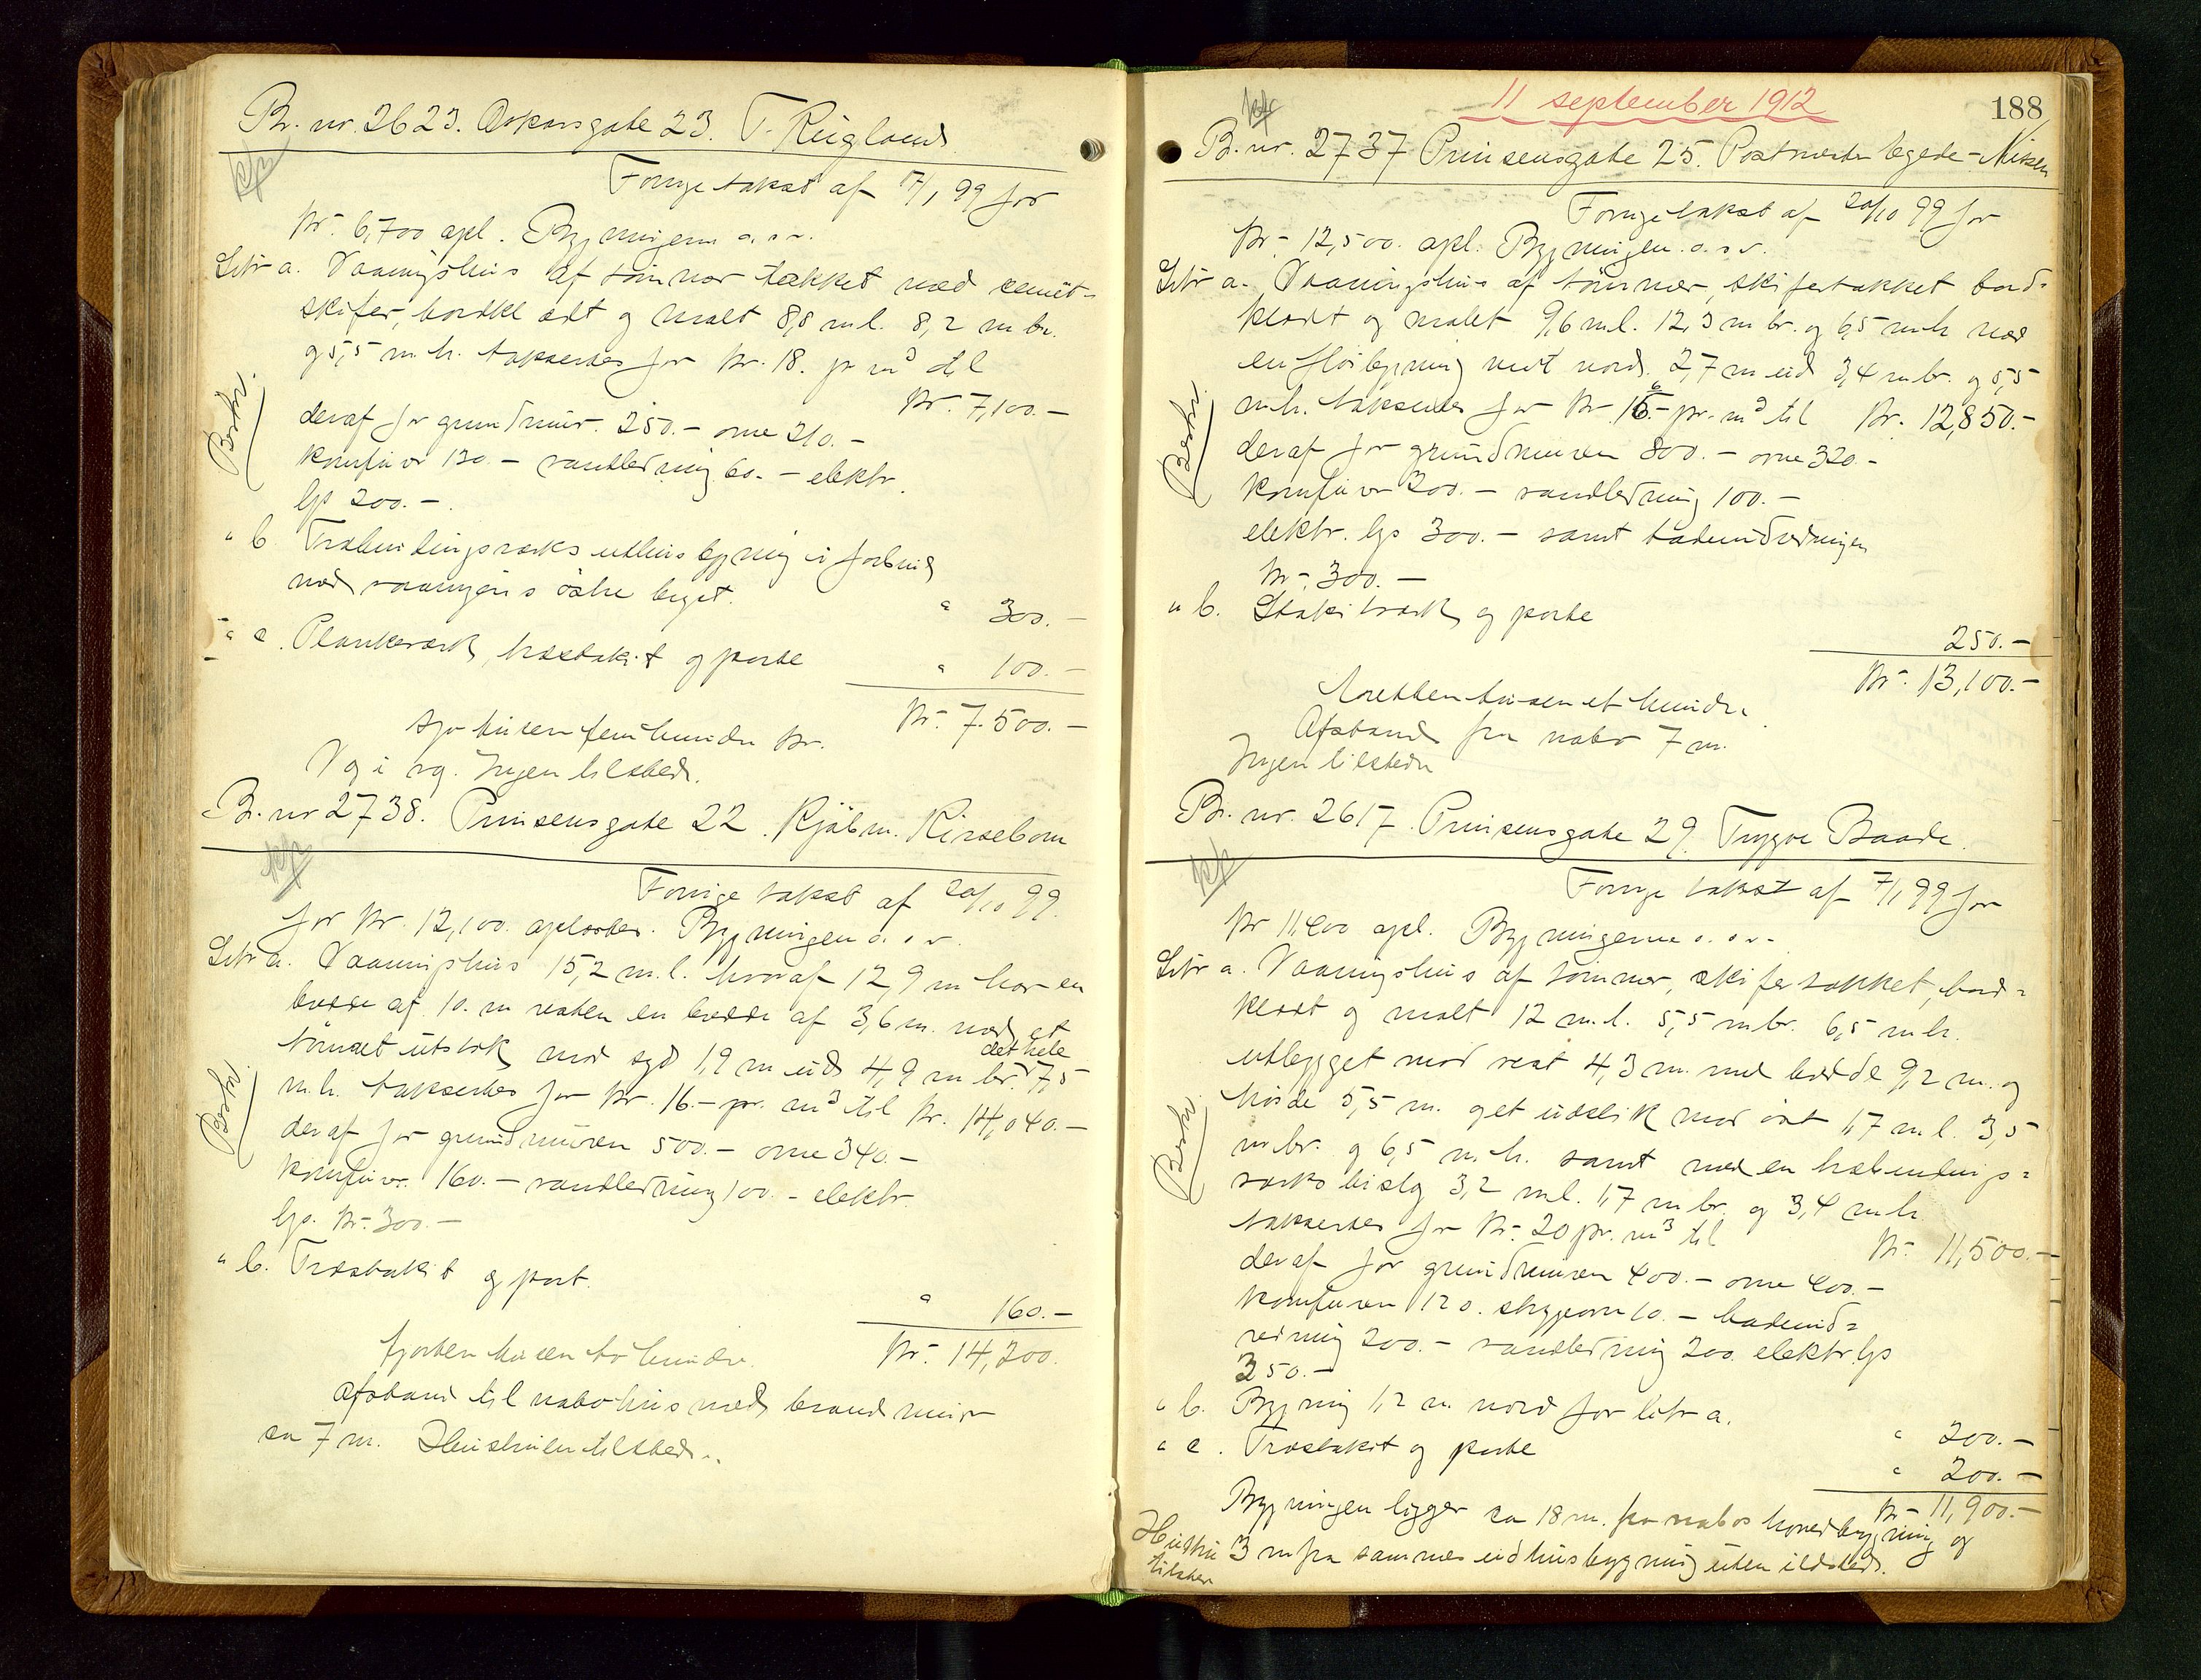 Br. nr. 2623. Oskarsgate 23. T. Kuglands
Forrige takst af 17/1 99 for
kr. 6,700 opl. Bygningerne o.s.v.
Litr a. Vaaningshus af tømmer tækket med cemit-
skifer, bordklædt og malt 8,8 m l. 8,2 m br.
og 5,5 m. h. takseredes for kr. 18. pr m3 til
kr. 7,100.-
deraf for grundmur. 250.- ovne 210.-
komfurer 130.- vandledning 60.- elektr.
lys 200.-
Beskr.
" b Træbindingsværks udhusbygning i forbind
med vaaningens østre bygst.
" 300.-
" c. Plankeværk, træstakit og porte
" 100.-
kr. 7.500.-
syv tusen fem hundre kr.
V og i vg. Ingen tilstede.
Br. nr 2738. Prinsensgate 22. Kjøbm. Kirsebom
Forrige takst af 20/10 99.
for kr. 12,100. oplæstes. Bygningen o.s.v.
Litr a. Vaaningshus 15,2 m. l. hvoraf 12,9 m har en
bredde af 10. m resten en bredde af 3,6 m. med et
tømret utstik mod syd 1,9 m ud 4,9 m br. det hele 7,5
m. h. takseredes for kr. 16.- pr. m3 til kr. 14,040.-
deraf for grundmuren 500.- ovne 340.-
komfurer. 160.- vandledning 100.- elektr.
lys. kr. 300.-
Beskr.
" b. Træstakit og port.
" 160.-
kr. 14,200.
fjorten tusen to hundre.
Afstand til nabohus med brandmur
ca 7 m. Husholder tilstede..
11 september 1912
188
B. nr. 2737 Prinsensgate 25. Postmester Egede-Nissen
Forrige takst af 20/10 99 for
kr. 12,500. opl. Bygningen. o.s.v.
Litr a. Vaaningshus af tømmer, skifertækket bord-
klædt og malet 9,6 m l. 12,3 m br. og 6,5 m h med
en fløibygning mot nord. 2,7 m ud 3,4 m br. og 5,5
m. h. takseredes for kr 16.- pr. m3 til kr. 12,850.-
deraf for grundmuren 800.- ovne 320.-
komfurer 200.- vandledning 100.-
elektr. lys 300.- samt badeindredningen
kr. 300.-
Beskr.
" b. Stakitværk og porte
250.-
kr. 13,100.-
tretten tusen et hundre.
Afstand fra nabo 7 m.
Ingen tilstede
Br. nr. 2617. Prinsensgate 29. Trygve Baade.
Forrige takst af 7/1 99 for
kr 11,400 opl. Bygningerne o.s.v.
Litr a. Vaaningshus af tømmer, skifertækket, bord-
klædt og malt 12 m. l. 5,5 m br. 6,5 m h.
utbygget mod vest 4,3 m. med bredde 9,2 m. og
høide 5,5 m. og et udstik mod øst 1,7 m l. 3,5
m br. og 6,5 m. h. samt med en træbindings-
værks bislag 3,2 m l. 1,7 m br. og 3,4 m h
takseredes for kr. 20 pr. m3 til
kr. 11,500.-
deraf for grundmuren 400.- ovne 400.-
komfuren 120. strygeovn 10.- badeind-
redning 200.- vandledning 200. elektr. lys
350.-
Beskr.
" b. Bygning 1,2 m. nord for litr a.
" 200.-
" c. Træstakit og porte
" 200.-
kr. 11,900.-
Bygningen ligger ca 18 m. fra nabos hovedbygning og
3 m fra sammes udhusbygning uten ildsted.
Hustru
tilstede